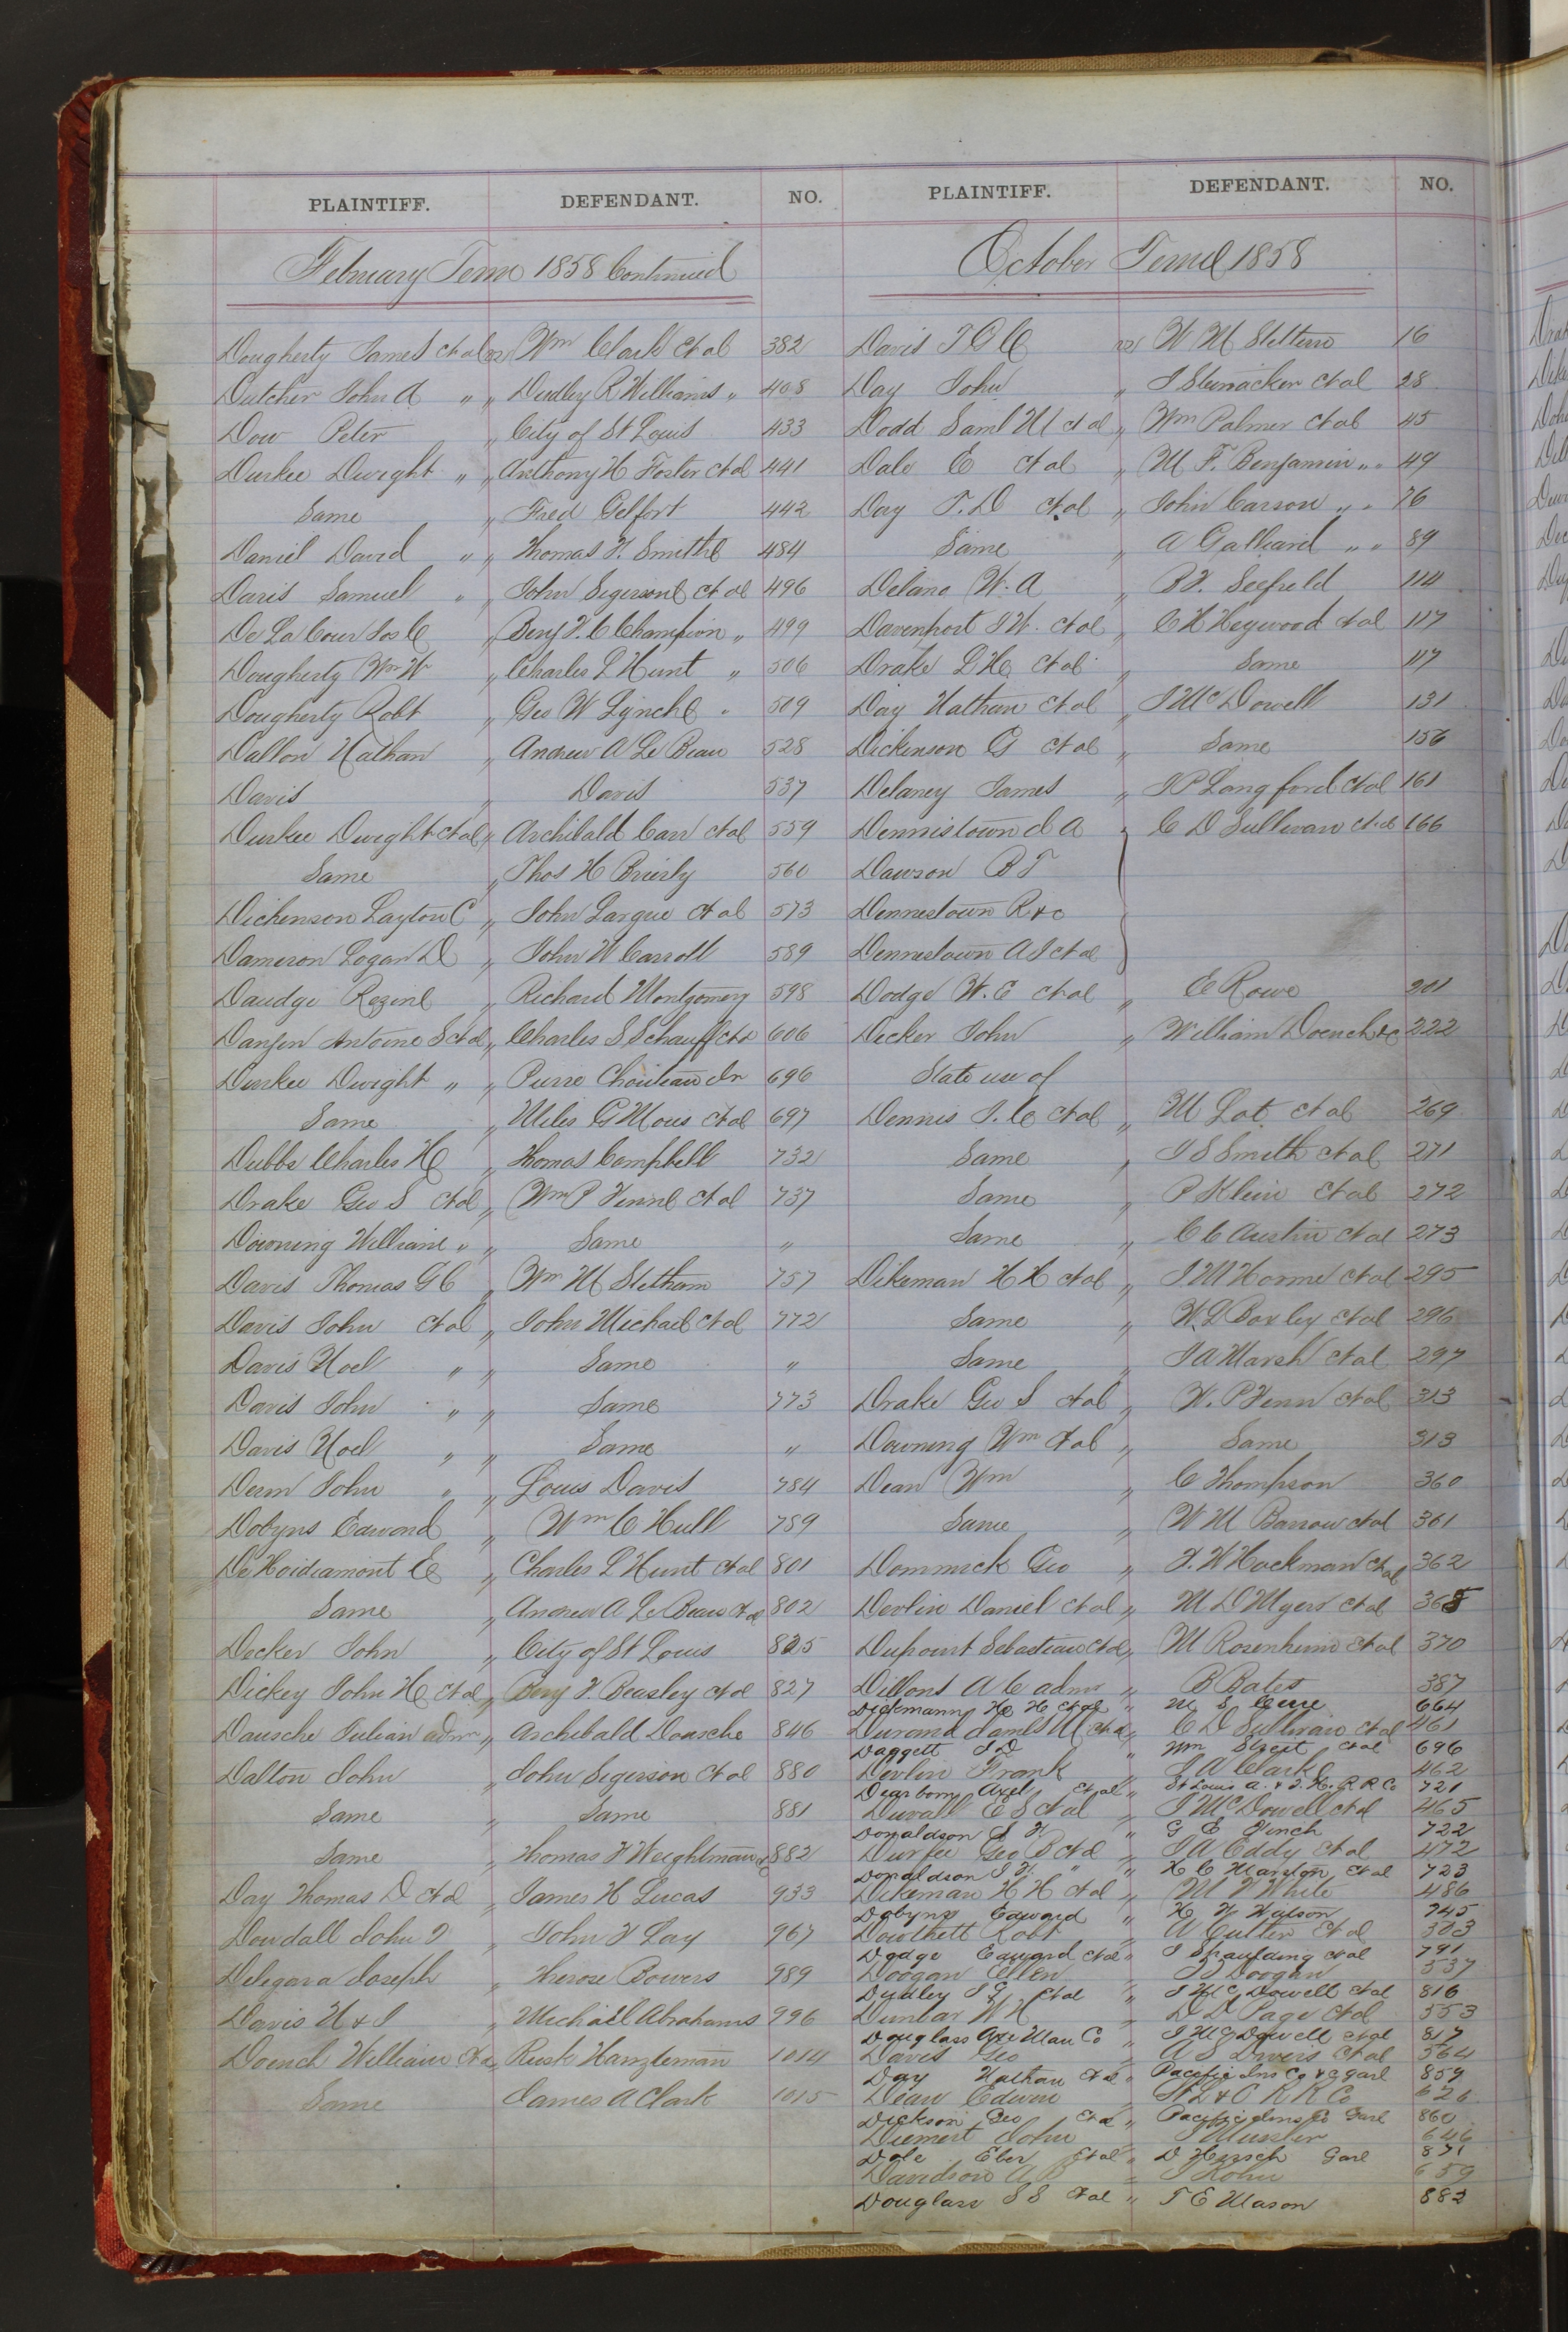 PLAINTIFF. DEFENDANT. NO.
February Term 1858 Continued
Dougherty James et al vs Wm Clark et al 382
Dutcher John A " " Dudley R Williams " 408
Dow Peter " City of St Louis 433
Durkee Dwight " " Anthony H Foster et al 441
Same " Fred Gelfort 442
Daniel David " " Thomas F. Smith 484
Davis Samuel " " John Sigerson et al 496
De La Cour Jos C " Benj F. C Champion " 499
Dougherty Wm W " Charles L Hunt " 506
Dougherty Robt " Geo W Lynch " 509
Dalton Nathan " Andrew A Le Beau 528
Davis " Davis 537
Durkee Dwight et al " Archibald Carr et al 559
Same " Thos H Brierly 560
Dickenson Layton C " John Largue et al 573
Dameron Logan D " John W Carroll 589
Daudge " Richard Montgomery 598
Danjen Antoine S et al " Charles S 606
Durkee Dwight " " Pierre Chouteau Jr 696
Same " Miles G Moies et al 697
Dubbs Charles H " Thomas Campbell 732
Drake Geo S et al " Wm P Fenn et al 737
Downing William " " Same "
Davis Thomas G C " Wm M 757
Davis John et al " John Michael et al 772
Davis Noel " " Same "
Davis John " " Same 773
Davis Noel " " Same "
John " " Louis Davis 784
Dobyns Edward " Wm C Hull 789
De Hoidiamont E " Charles L Hunt et al 801
Same " Andrew A Le Beau et al 802
Decker John " City of St Louis 825
Dickey John H et al " Benj F. Beasley et al 827
Dausche Julian admr " Archibald Dausche 846
Dalton John " John Sigerson et al 880
Same " Same 881
Same " Thomas F Weightman 882
Day Thomas D et al " James H Lucas 933
Dowdall John " John F Lay 967
Delegara Joseph " Therese Bowers 989
Davis H & I " Michael Abrahams 996
Doench William et al Rusk Hanzleman 1014
Same James A Clark 1015
PLAINTIFF. DEFENDANT. NO.
October Term 1858
Davis T G C vs W M 16
Day John " J Stenacker et al 28
Dodd Saml M et al " Wm Palmer et al 45
Dale E et al " M F. Benjamin " " 49
Day T. D et al " John Carson " " 76
Same " A Galliard " " 89
Delano W. A " B F. Seefield 114
Davenport J W. et al " C H Heywood et al 117
Drake L H et al " Same 117
Day Nathan et al " J McDowell 131
Dickenson G et al " Same 156
Delaney James " J P Langford et al 161
Dennistown A C D Sullivan et al 166
Dawson B T
Dennestown R & c
Dennestown A J et al
Dodge W. E et al " E Rowe 201
Decker John " William Doench &c 222
State use of
Dennis J. C et al " M Lat et al 269
Same " J S Smith et al 271
Same " P Klein et al 272
Same " C C Austin et al 273
Dikeman H H et al " J M Horme et al 295
Same " W L Boxley et al 296
Same " J A Marsh et al 297
Drake Geo S et al " W. P Fenn et al 313
Downing Wm et al " Same 313
Dean Wm " C Thompson 360
Same " W M Barrow et al 361
Dommick Geo " F. W Hockman et al 362
Devlin Daniel et al " M D Myers et al 365
Dupoint Sebastian et al " M Rosenheim et al 370
Dillons A C admr " B Bates 387
Dickmann H H et al " M S Cerre 664
Durand James M et al " C D Sullivan et al 461
Daggett J D " Wm Street et al 696
Devlin Frank " L A Clark 462
Dearborn Axel et al " St Louis A. & T. H. R R Co 721
Duvall E S et al " J McDowell et al 465
Donaldson S F " G E Finch 722
Durfee Geo B et al " J A Eddy et al 472
Donaldson S F. " " H C Marston et al 723
Dikeman H H et al " M F White 486
Dobyns Edward " H W Watson 745
Dowthett Robt " A Cutter et al 503
Dodge Edward et al " J Spaulding et al 791
Doogan Ellen " Doogan 537
Dudley J G et al " J McDowell et al 816
Dunbar W H " D D Page et al 553
Douglass Axe Man Co " J McDowell et al 817
Davis Geo " A S Divers et al 564
Day Nathan et al " Pacific Ins Co & Garl 859
Dean Edwin " St L & C R R Co 626
Dickson Geo et al " Pacific Ins Co Garl 860
Diemert John " 646
Dole Eber et al " D Hersch Garl 871
Davidson A B " J Kohn 659
Douglass S S et al " T E Mason 882